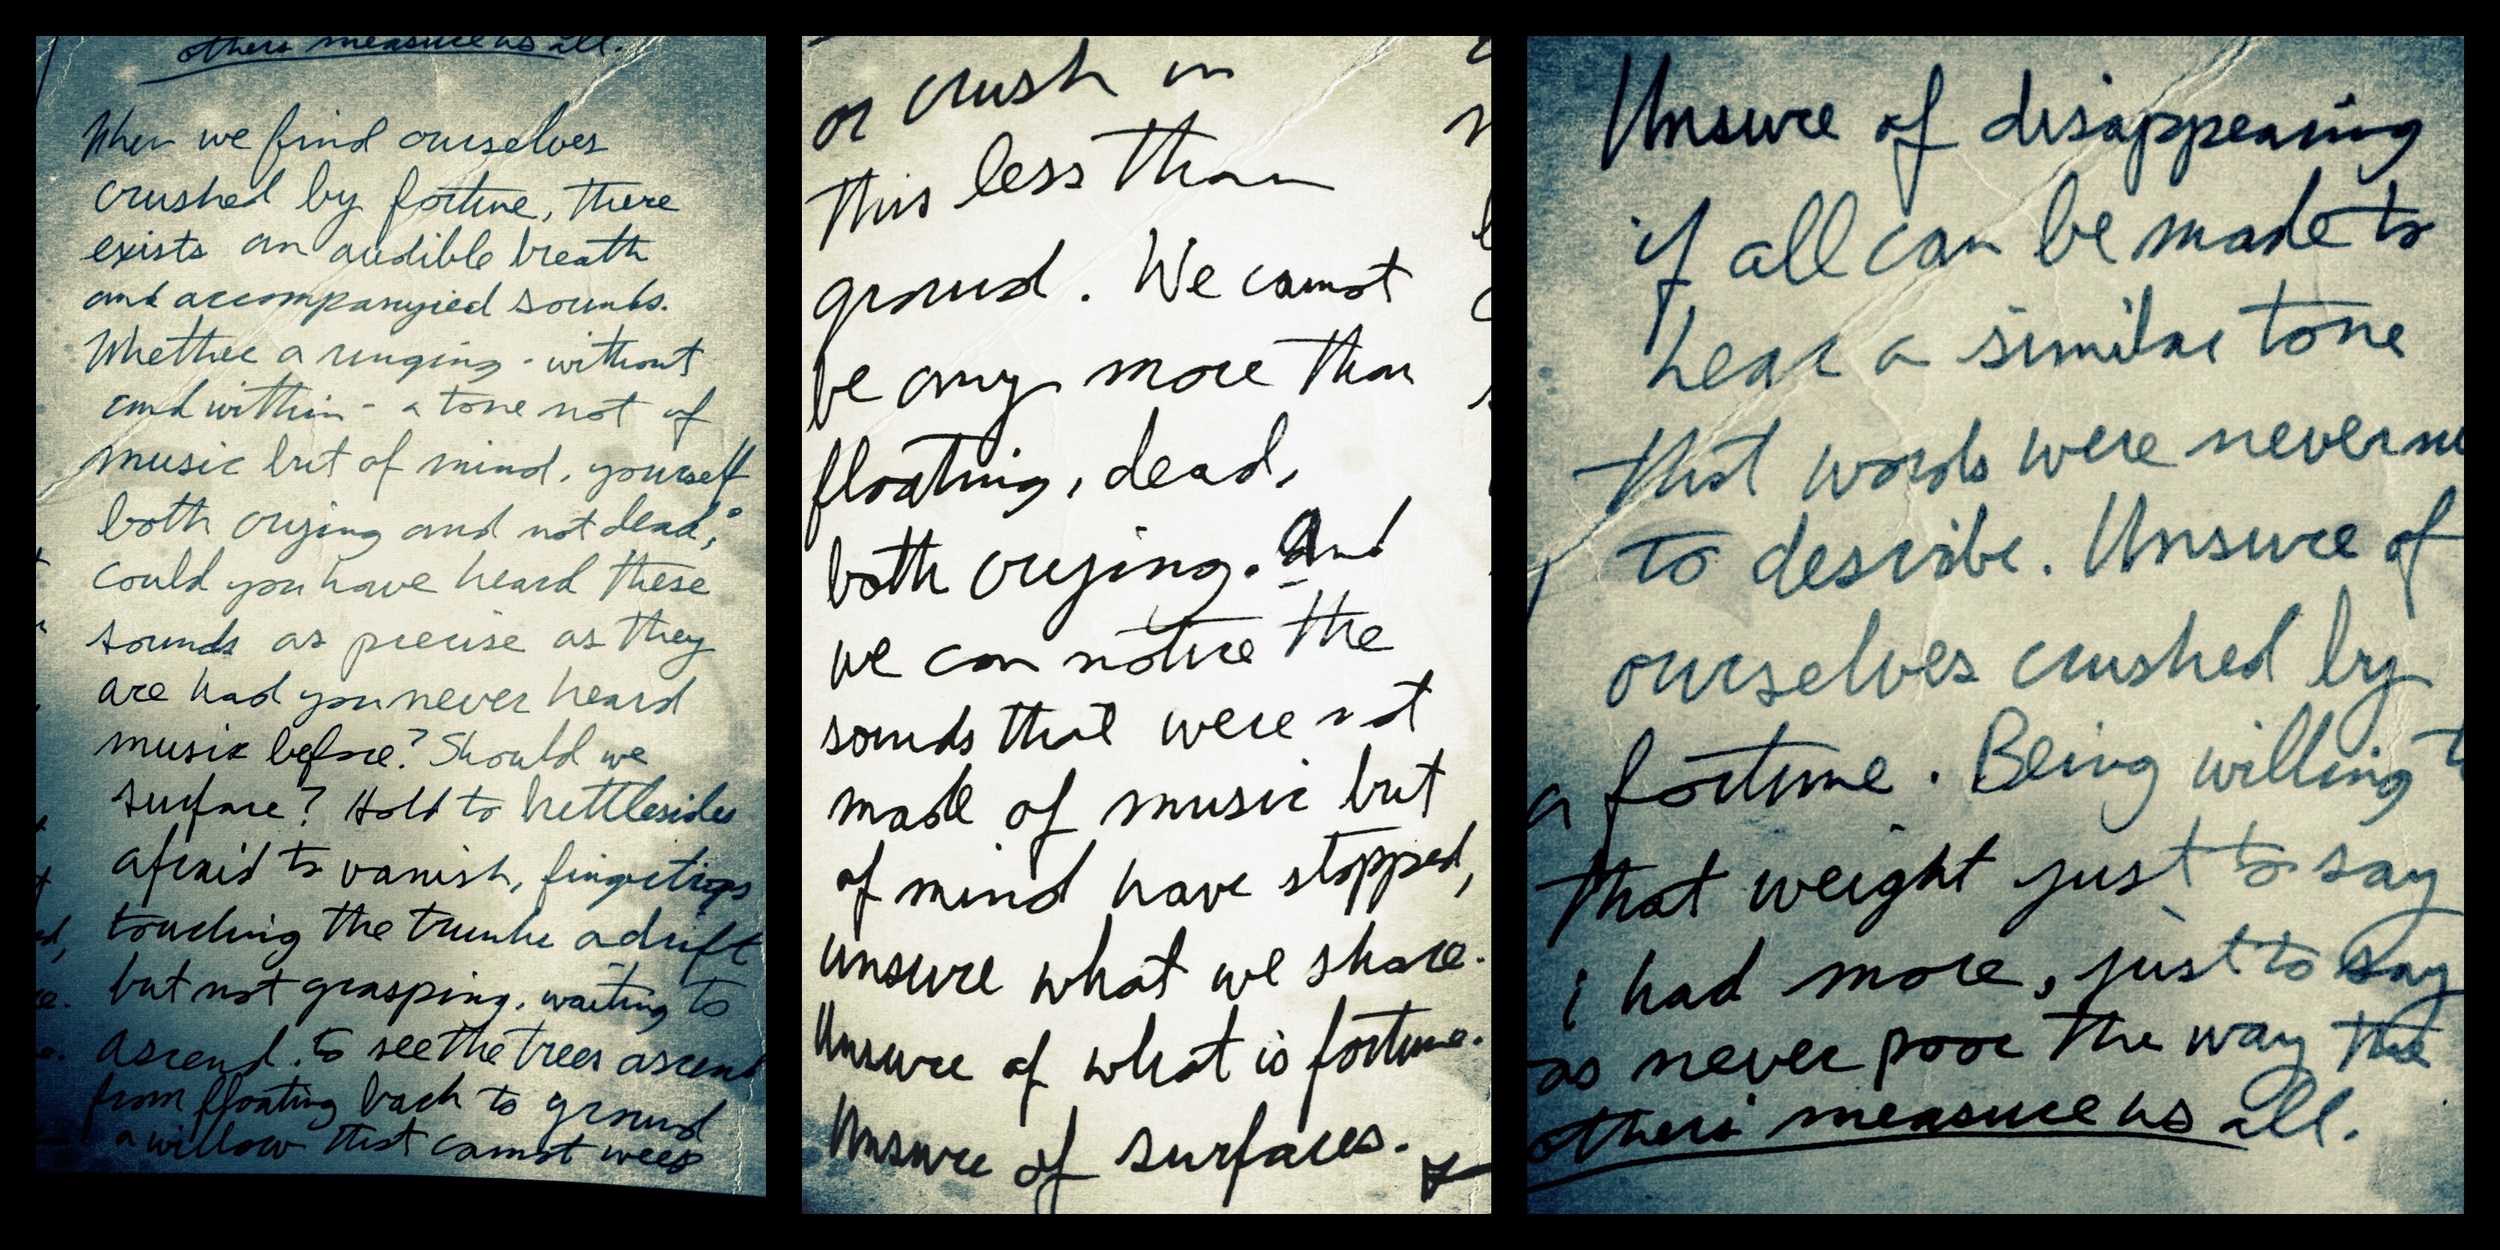 others measure us all.
When we find ourselves
crushed by fortune, there
exists an audible breath
and accompanyied sounds.
Whether a ringing - without
and within - a tone not of
music but of mind, yourself
both crying and not dead;
could you have heard these
sounds as precise as they
are had you never heard
music before? Should we
surface? Hold to
afraid to vanish, fingertips
touching the trunks adrift
but not grasping, waiting to
ascend. to see the trees ascend
from floating back to ground
a willow that cannot weep
or crush in
this less than
ground. We cannot
be any more than
floating, dead,
both crying. And
we can notice the
sounds that were not
made of music but
of mind have stopped,
unsure what we share.
Unsure of what is fortune.
Unsure of surfaces.
Unsure of disappearing
if all can be made to
hear a similar tone
that words were never
to describe. Unsure of
ourselves crushed by
a fortune. Being willing
that weight just to say
i had more, just to say
as never poor the way the
others measure us all.